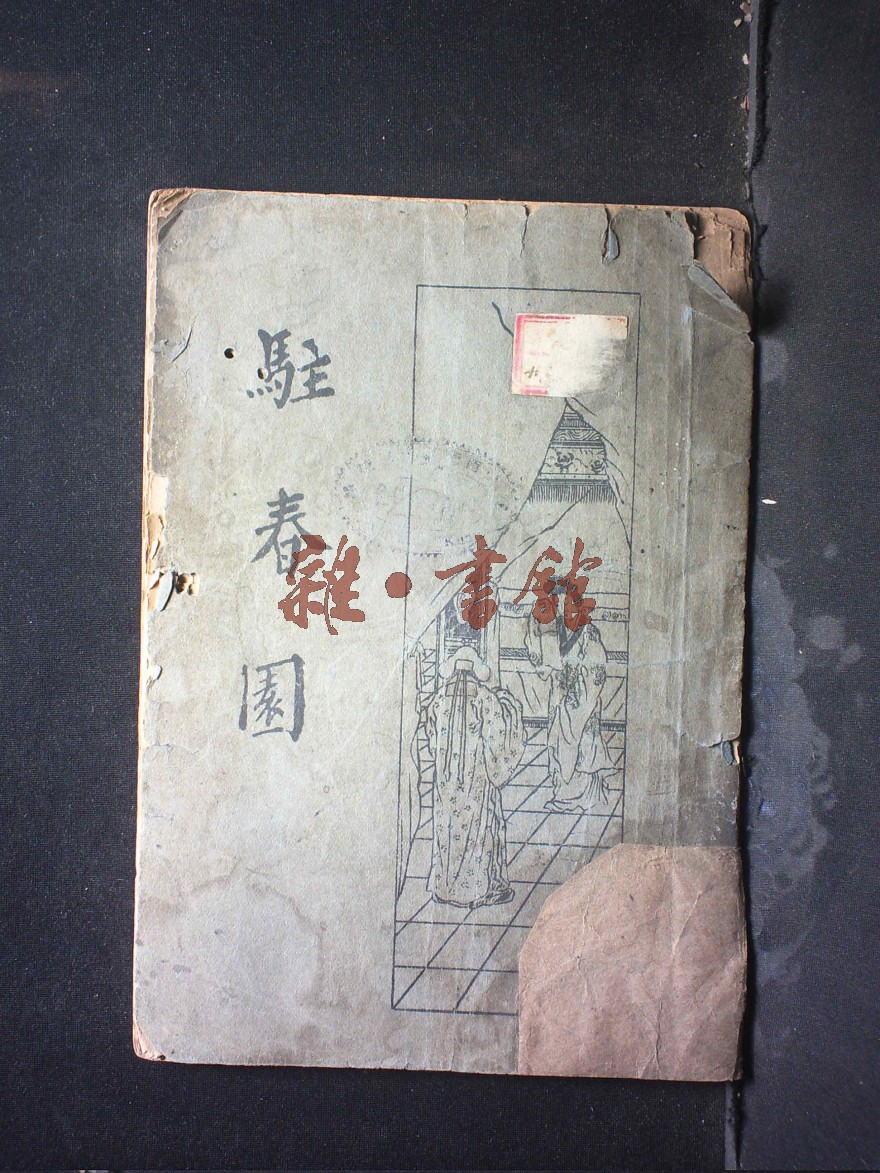 駐春園
雜·書館